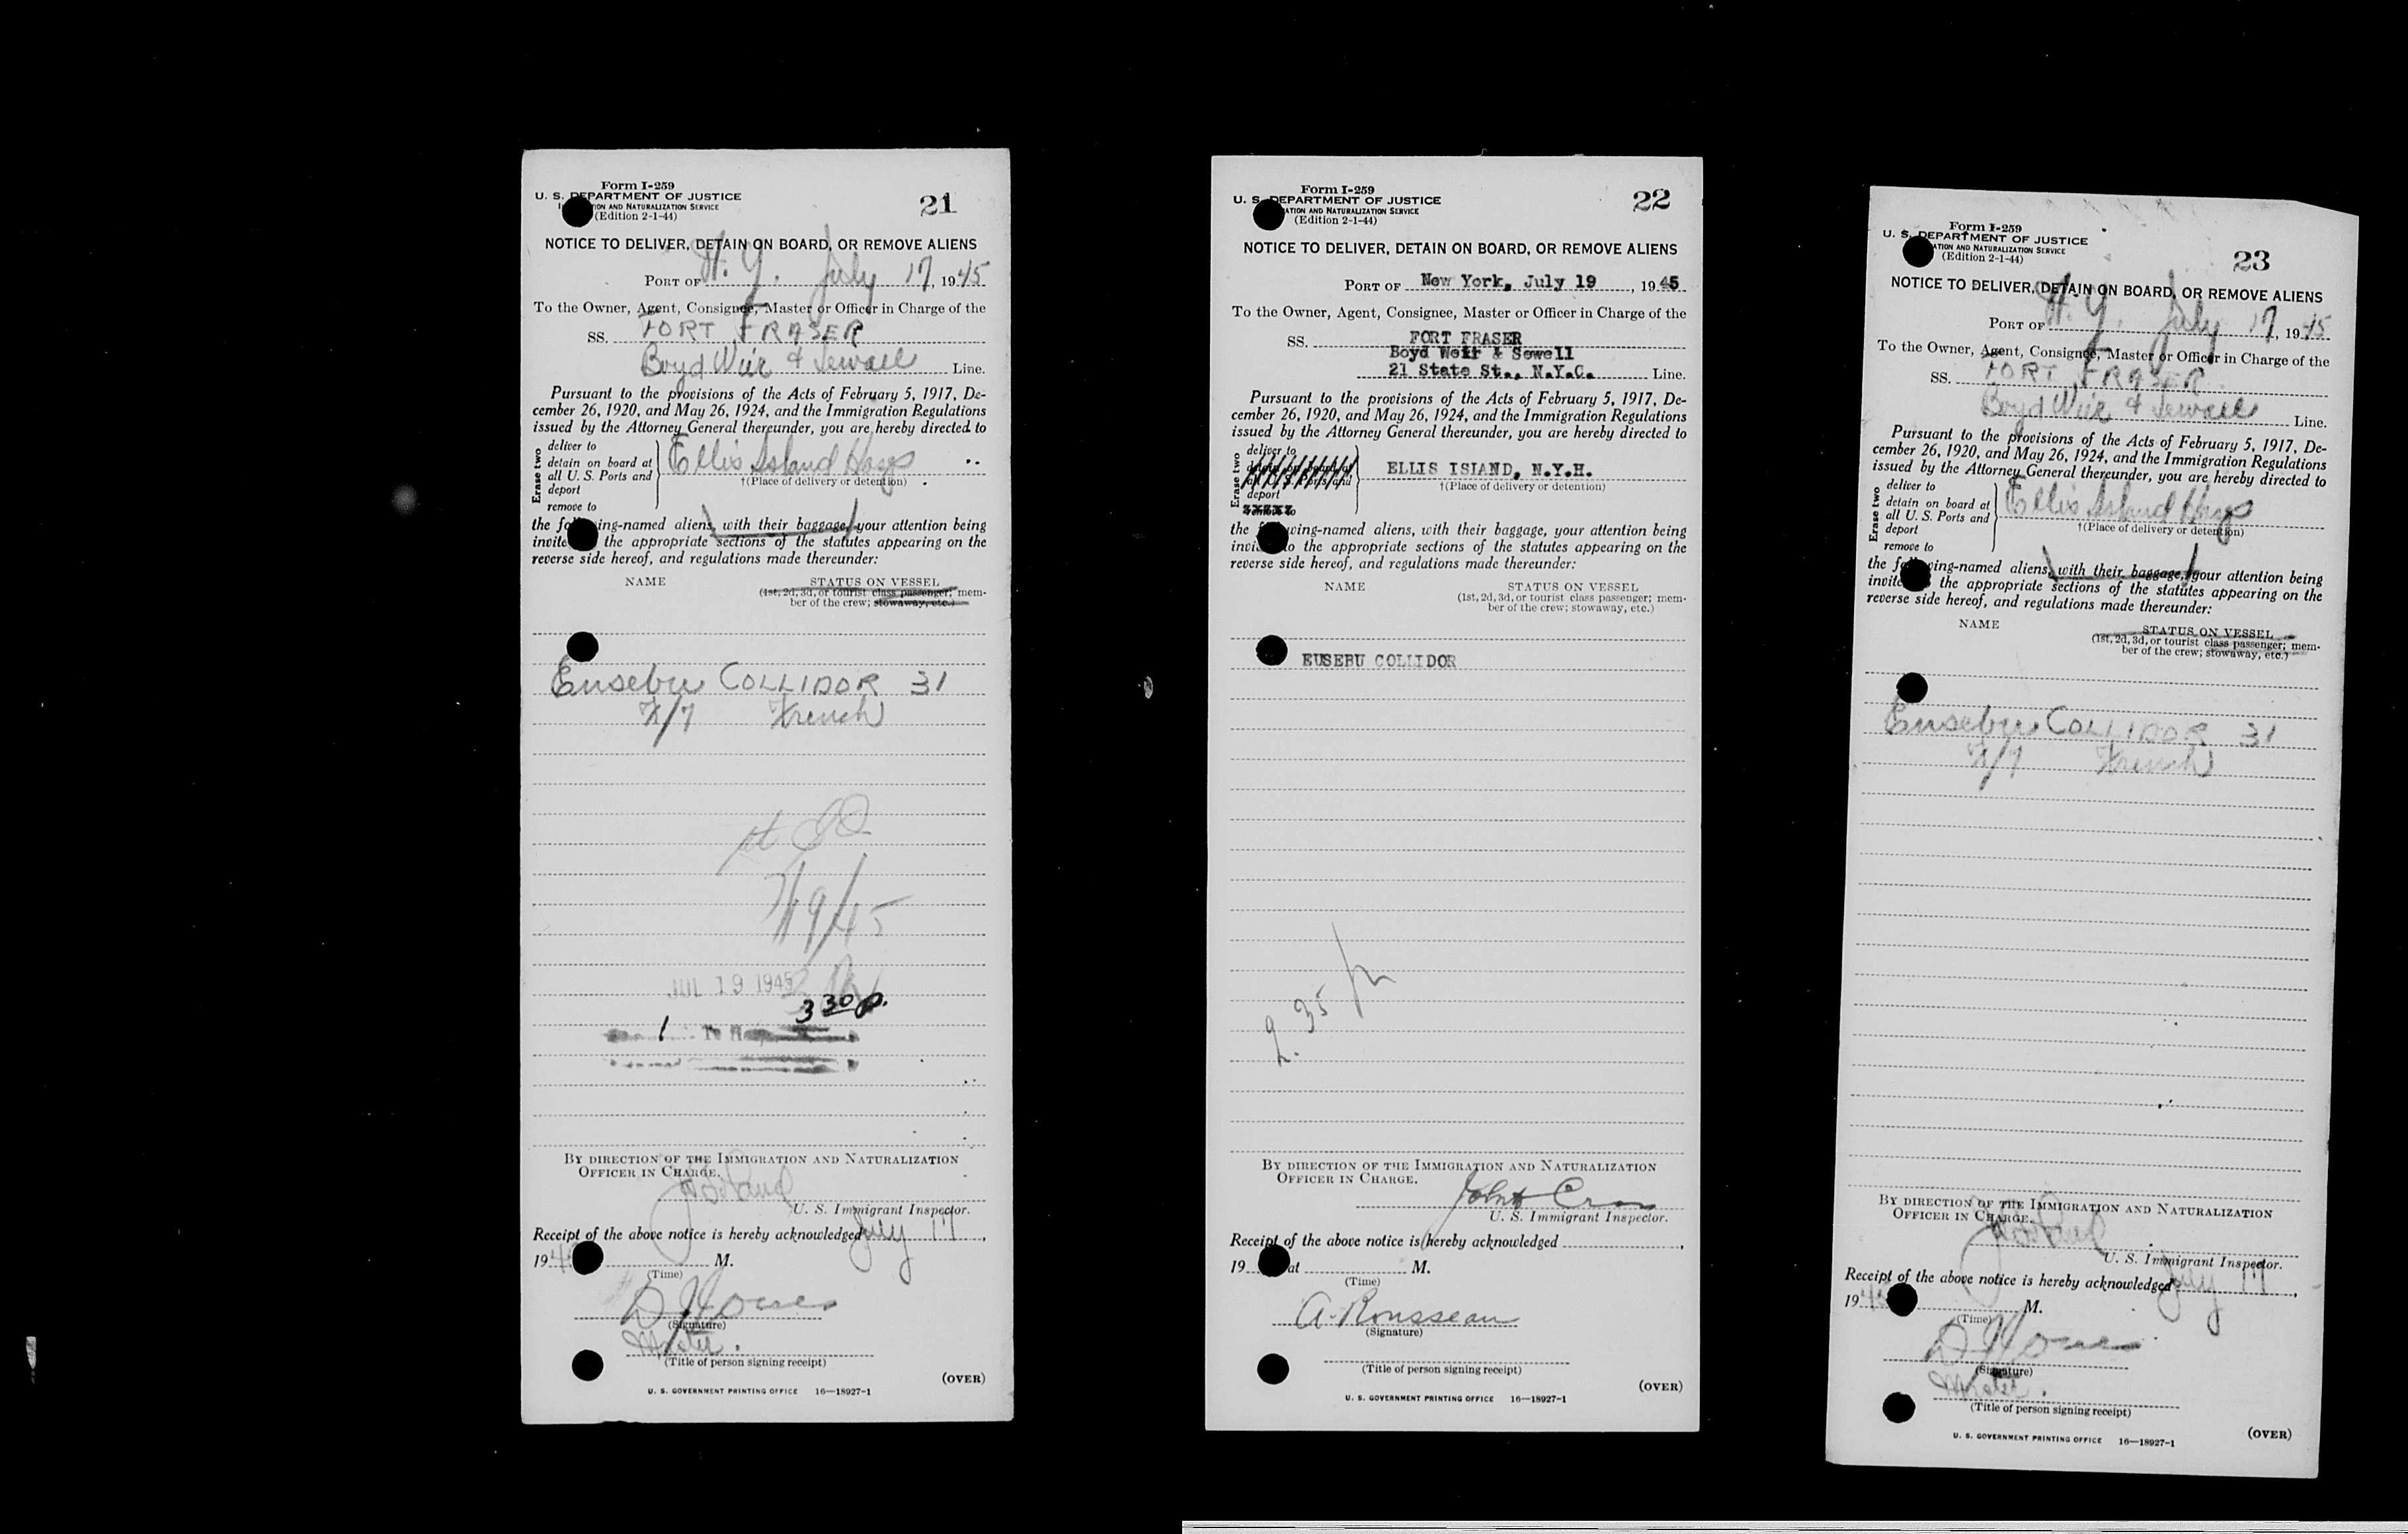 Form I-259
U. S. DEPARTMENT OF JUSTICE
AND NATURALIZATION SERVICE
(Edition 2-1-44)
21
NOTICE TO DELIVER, DETAIN ON BOARD, OR REMOVE ALIENS
PORT OF N. Y. July 17, 1945
To the Owner, Agent, Consignee, Master or Officer in Charge of the
SS. FORT FRASER
Boyd Weir & Sewall Line.
Pursuant to the provisions of the Acts of February 5, 1917, De-
cember 26, 1920, and May 26, 1924, and the Immigration Regulations
issued by the Attorney General thereunder, you are hereby directed to
Erase two
deliver to
detain on board at
all U. S. Ports and
deport
remove to
Ellis Island Hosp
†(Place of delivery or detention)
the following-named aliens, with their baggage, your attention being
invited to the appropriate sections of the statutes appearing on the
reverse side hereof, and regulations made thereunder:
NAME STATUS ON VESSEL
(1st, 2d, 3d, or tourist class passenger; mem-
ber of the crew; stowaway, etc.)
Eusebu COLLIDOR 31
French
JUL 19 1945
3 30 p.
1
BY DIRECTION OF THE IMMIGRATION AND NATURALIZATION
OFFICER IN CHARGE.
U. S. Immigrant Inspector.
Receipt of the above notice is hereby acknowledged July 17,
19 M.
(Time)
(Signature)
Master.
(Title of person signing receipt)
(OVER)
U. S. GOVERNMENT PRINTING OFFICE 16—18927-1
Form I-259
U. S. DEPARTMENT OF JUSTICE
AND NATURALIZATION SERVICE
(Edition 2-1-44)
22
NOTICE TO DELIVER, DETAIN ON BOARD, OR REMOVE ALIENS
PORT OF New York, July 19, 1945
To the Owner, Agent, Consignee, Master or Officer in Charge of the
SS. FORT FRASER
Boyd Weir & Sewell
21 State St., N.Y.C. Line.
Pursuant to the provisions of the Acts of February 5, 1917, De-
cember 26, 1920, and May 26, 1924, and the Immigration Regulations
issued by the Attorney General thereunder, you are hereby directed to
Erase two
deliver to
detain on board at
all U. S. Ports and
deport
remove to
ELLIS ISLAND, N.Y.H.
†(Place of delivery or detention)
the following-named aliens, with their baggage, your attention being
invited to the appropriate sections of the statutes appearing on the
reverse side hereof, and regulations made thereunder:
NAME STATUS ON VESSEL
(1st, 2d, 3d, or tourist class passenger; mem-
ber of the crew; stowaway, etc.)
EUSEBU COLLIDOR
2.35 
BY DIRECTION OF THE IMMIGRATION AND NATURALIZATION
OFFICER IN CHARGE.
U. S. Immigrant Inspector.
Receipt of the above notice is hereby acknowledged
19 at M.
(Time)
A. Rousseau
(Signature)
(Title of person signing receipt)
(OVER)
U. S. GOVERNMENT PRINTING OFFICE 16—18927-1
Form I-259
U. S. DEPARTMENT OF JUSTICE
AND NATURALIZATION SERVICE
(Edition 2-1-44)
23
NOTICE TO DELIVER, DETAIN ON BOARD, OR REMOVE ALIENS
PORT OF N. Y. July 17, 1945
To the Owner, Agent, Consignee, Master or Officer in Charge of the
SS. FORT FRASER
Boyd Weir & Sewall Line.
Pursuant to the provisions of the Acts of February 5, 1917, De-
cember 26, 1920, and May 26, 1924, and the Immigration Regulations
issued by the Attorney General thereunder, you are hereby directed to
Erase two
deliver to
detain on board at
all U. S. Ports and
deport
remove to
Ellis Island Hosp
†(Place of delivery or detention)
the following-named aliens, with their baggage, your attention being
invited to the appropriate sections of the statutes appearing on the
reverse side hereof, and regulations made thereunder:
NAME STATUS ON VESSEL
(1st, 2d, 3d, or tourist class passenger; mem-
ber of the crew; stowaway, etc.)
Eusebu COLLIDOR 31
French
BY DIRECTION OF THE IMMIGRATION AND NATURALIZATION
OFFICER IN CHARGE.
U. S. Immigrant Inspector.
Receipt of the above notice is hereby acknowledged July 17,
19 M.
(Time)
(Signature)
Master.
(Title of person signing receipt)
(OVER)
U. S. GOVERNMENT PRINTING OFFICE 16—18927-1